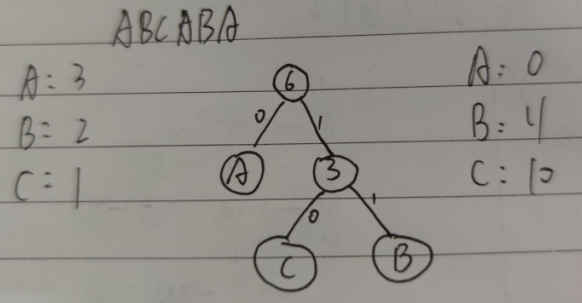 ABCABA
A: 3
B = 2
C = 1
6
0 1
A 3
0 1
C B
A: 0
B: 11
C: 10